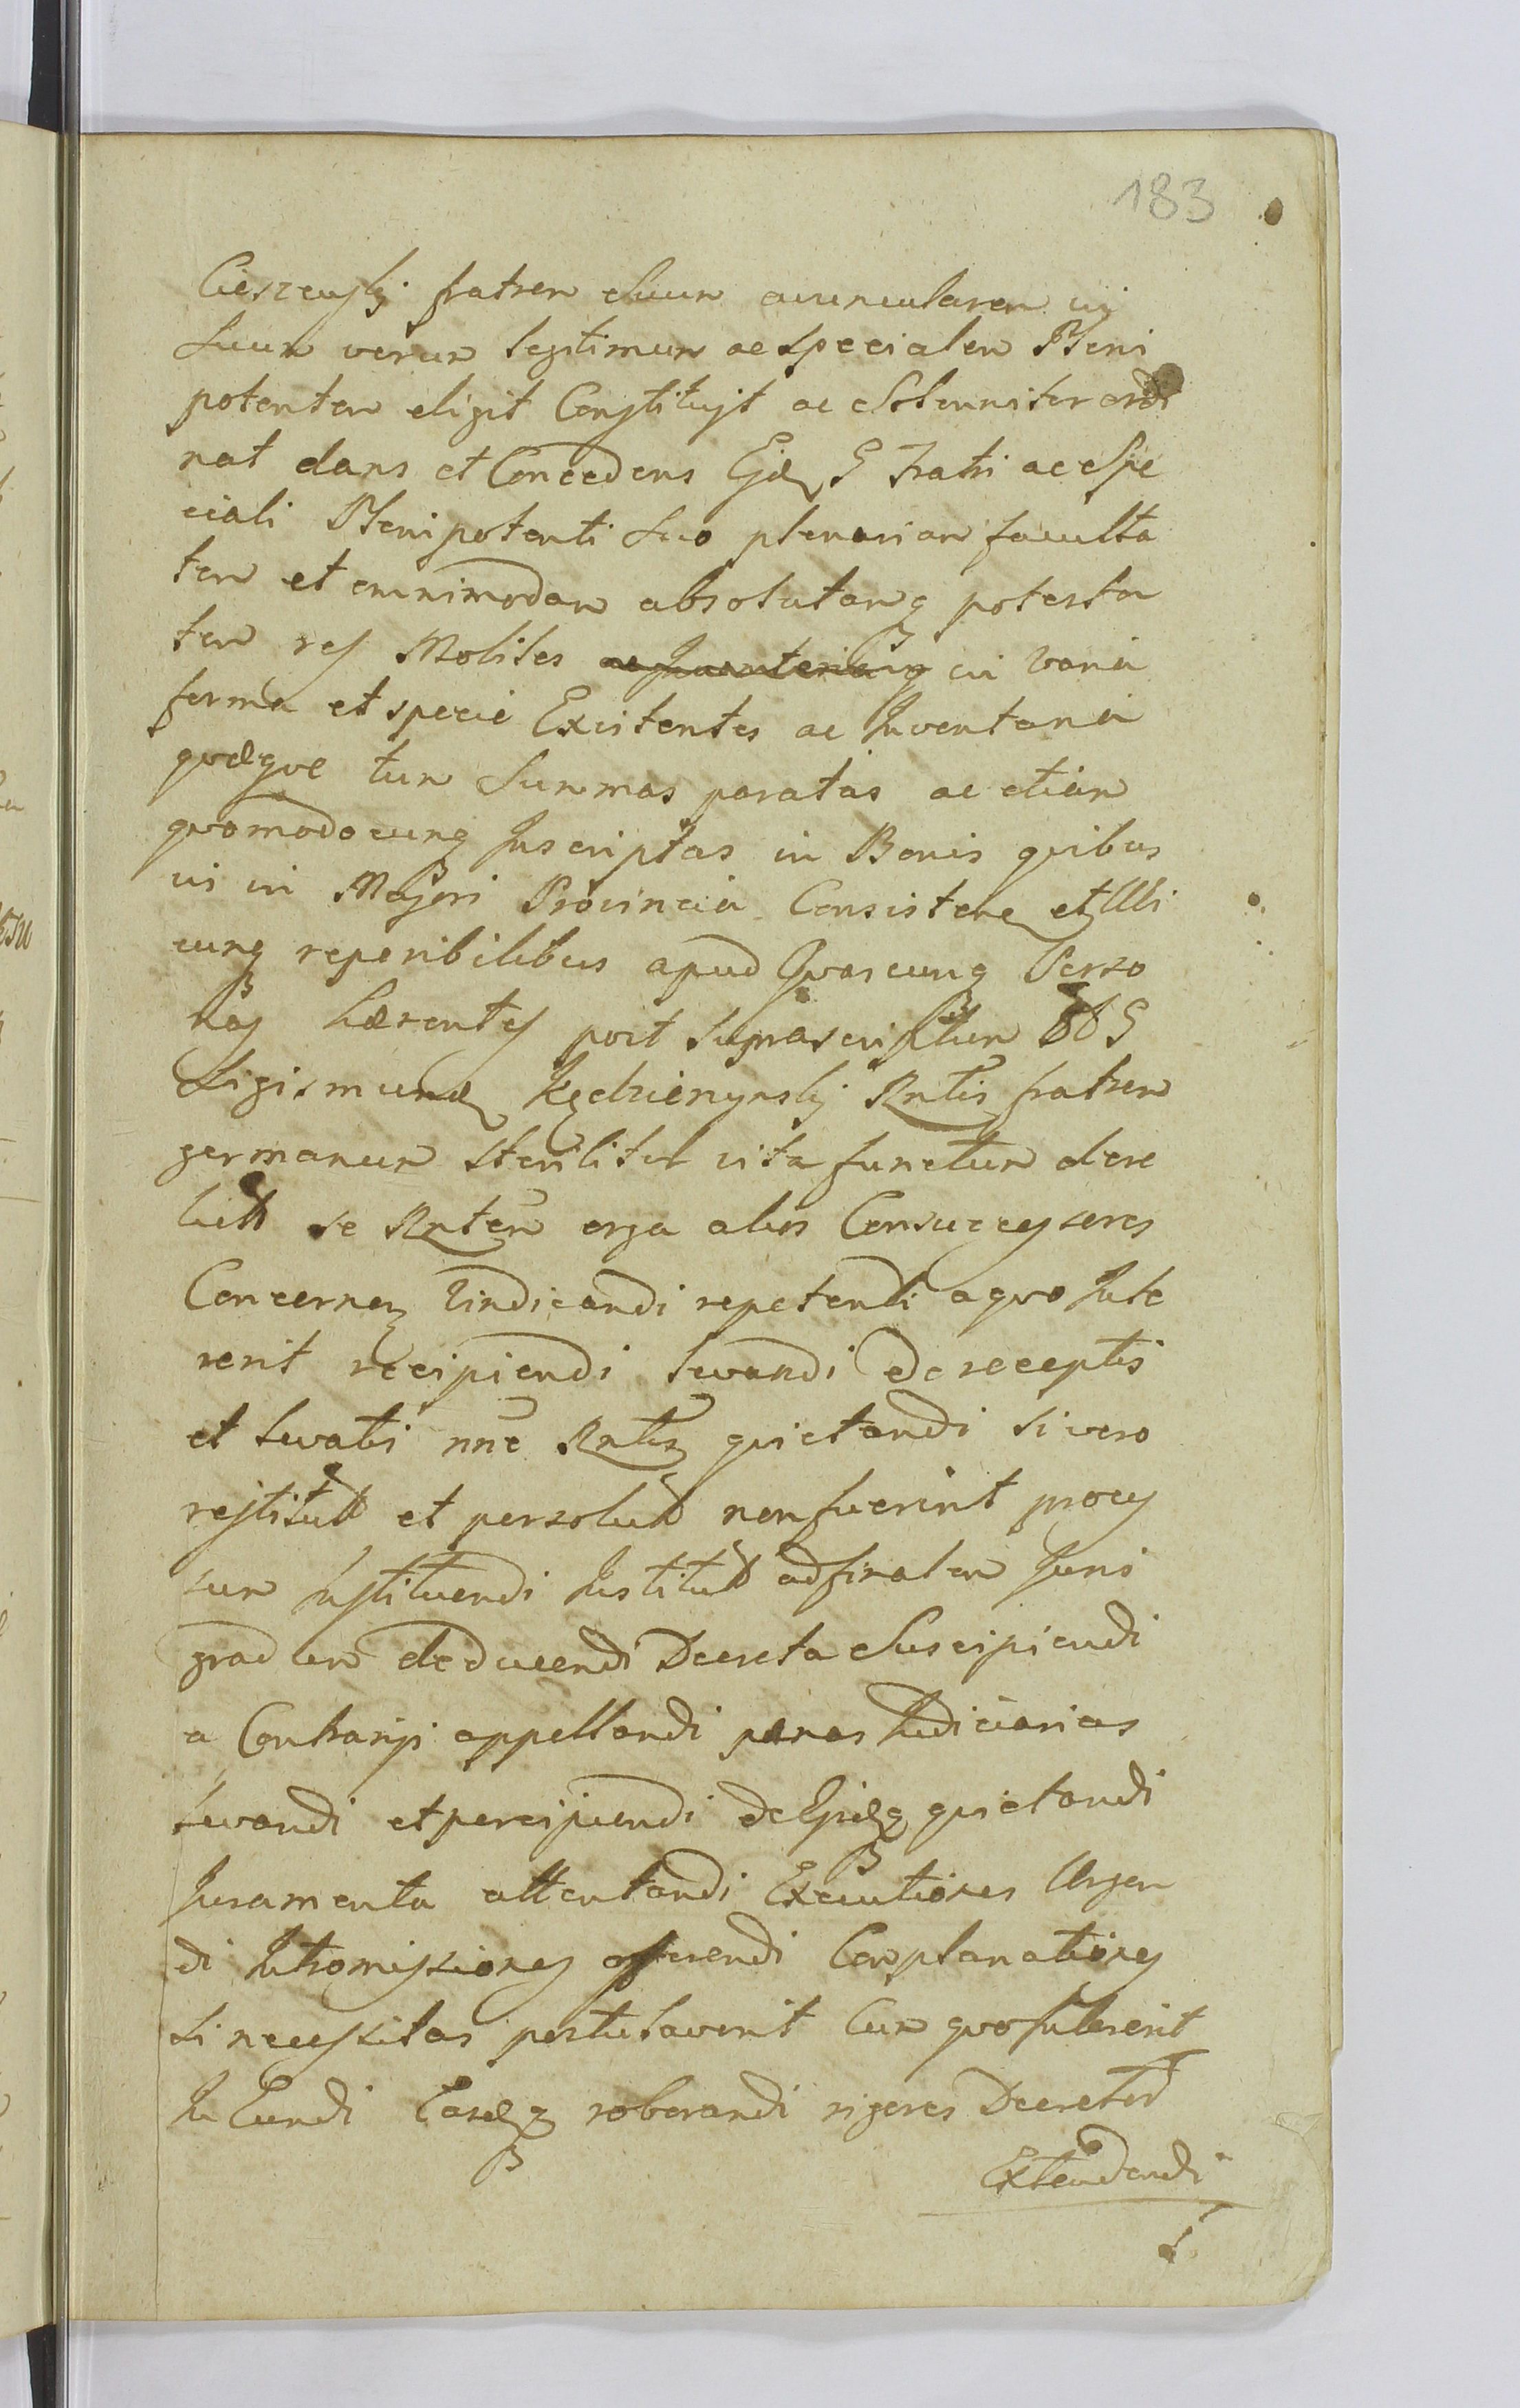 183
Cieszewskj fratrem Suum avuncularem uj
Suum verum legitimum ac specialem Pleni
potentem eligit Constituit ac Solenniter ordi
nat dans et Concedens Ejd G Fratri ac Spe
ciali Plenipotenti Suo plenariam faculta
tem et omnimodam absolutamq potesta
tem res Mobiles in varia
forma et specie Existentes ac Inventaria
quæque tum Summas paratas ac etiam
quomodocunq Inscriptas in Bonis quibus
vis in Majori Provincia Consisten et Ubi
cunq reperibilibus apud Quascunq Perso
nas hærentes post suprascriptum G
Sigismund Kędzierzynskj Rntis fratrem
germanum steriliter vita functum dere
lict se Rntem erga alios Consuccessores
Concernen Vindicandi repetendi a quo Inte
rerit recipiendi levandi de receptis
et levatis nne Rntis quietandi si vero
restitut et persolut non fuerint proces
sum Instituendi Institut ad finalem Juris
gradum deducendi Decreta Suscipiendi
a Contrarijs appellandi pænas Judiciarias
levandi et percipiendi de Ejsdq quietandi
Juramenta attentandi Executiones Urgen
di Intromissiones offerendi Complanationes
si necessitas postulaverit Cum quo Intererit
In Eundi Easdq roborandi rigores Decretor
Extendendi